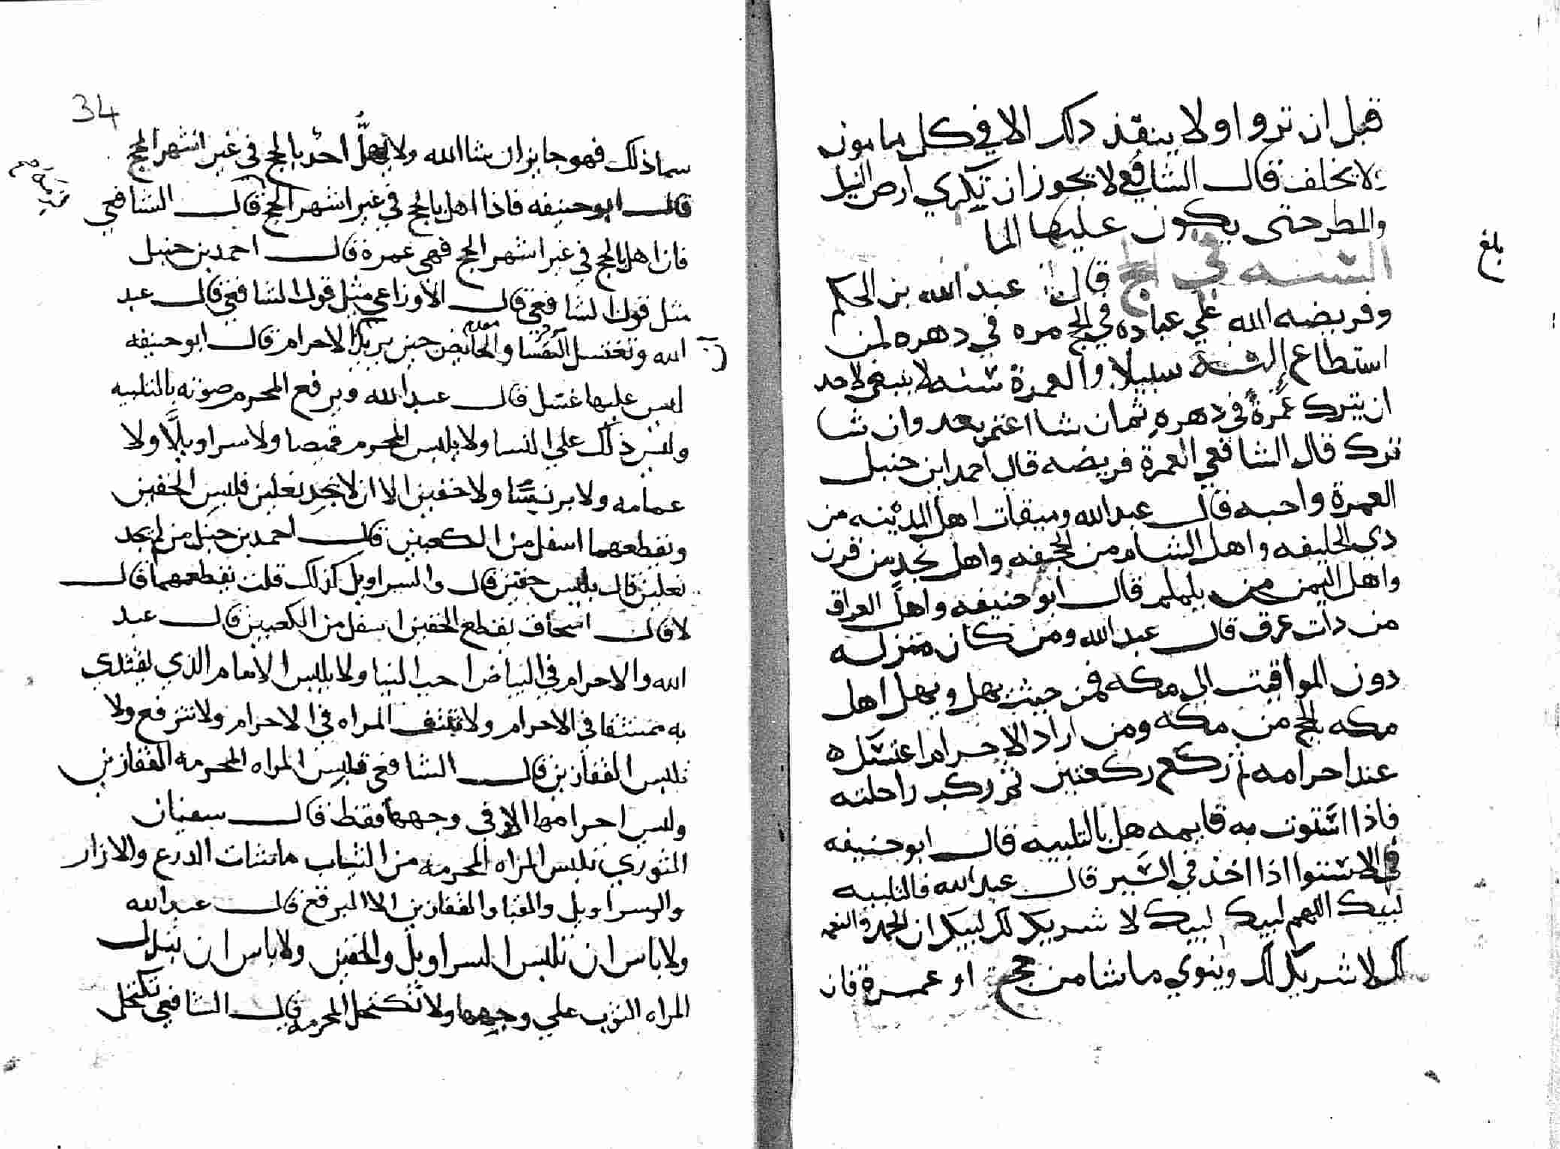 قبل ان تروا ولا ينقد ذلك الا في كل مامون
لا يخلف قال الشافعي لا يجوز ان تكري ارض النيل
والمطر حتى يكون عليها الما
السنه في الحج قال عبد الله بن الحكم
وفريضه الله علي عباده في الحج مره في دهره لمن
استطاع اليه سبيلا والعمرة سنه لا ينبغي لاحد
ان يترك عمرة في دهره ثم ان شا اعتمر بعد وان شا
ترك قال الشافعي العمرة فريضه قال احمد ابن حنبل
العمرة واجبه قال عبد الله وميقات اهل المدينه من
ذي الحليفه واهل الشام من الجحفه واهل نجد من قرن
واهل اليمن من يلملم قال ابو حنيفه واهل العراق
من ذات عرق قال عبد الله ومن كان منزله
دون المواقيت الي مكه فمن حيث يهل ويهل اهل
مكه بالحج من مكه ومن اراد الاحرام اغتسل
عند احرامه ثم ركع ركعتين ثم ركب راحلته
فاذا استوت به قايمه هل بالتلبيه قال ابو حنيفه
في الاستوا اذا اخذ في السير قال عبد الله فالتلبيه
لبيك اللهم لبيك لبيك لا شريك لك لبيك ان الحمد والنعمه
لك لا شريك لك وينوي ما شا من حج او عمرة فان
بلغ
34
سما ذلك فهو جايز ان شا الله ولا يهلُّ احد بالحج في غير اشهر الحج
قال ابو حنيفه فاذا اهل بالحج في غير اشهر الحج قال الشافعي
فان اهل بالحج في غير اشهر الحج فهي عمرة قال احمد بن حنبل
مثل قول الشافعي قال الاوزاعي مثل قول الشافعي قال عبد
الله وتغتسل النفسا والحايض حين يريد الاحرام قال ابو حنيفه
ليس عليها غسل قال عبد الله ويرفع المحرم صوته بالتلبيه
وليس ذلك علي النسا ولا يلبس المحرم قميصا ولا سراويلا ولا
عمامه ولا برنسا ولا خفين الا ان لا يجد نعلين فليبس الخفين
ونقطعهما اسفل من الكعبين قال احمد بن حنبل من لم يجد
نعلين قال يلبس خفين قال والسراويل كذلك قلت يقطعهما قال
لا قال اسحاق يقطع الخفين اسفل من الكعبين قال عبد
الله والاحرام في البياض احب الينا ولا يلبس الامام الذي يقتدي
به ممشقا في الاحرام ولا تنتقب المراه في الاحرام ولا تتبرقع ولا
تلبس القفازين قال الشافعي تلبس المراه المحرمة القفازين
وليس احرامها الا في وجهها فقط قال سفيان
الثوري تلبس المراه المحرمه من الثياب ما شات الدرع والازار
والسراويل والقبا والقفازين الا البرقع قال عبد الله
ولا باس ان تلبس السراويل والخفين ولا باس ان تسدل
المراه الثوب علي وجهها ولا تكتحل المحرمه قال الشافعي تكتحل